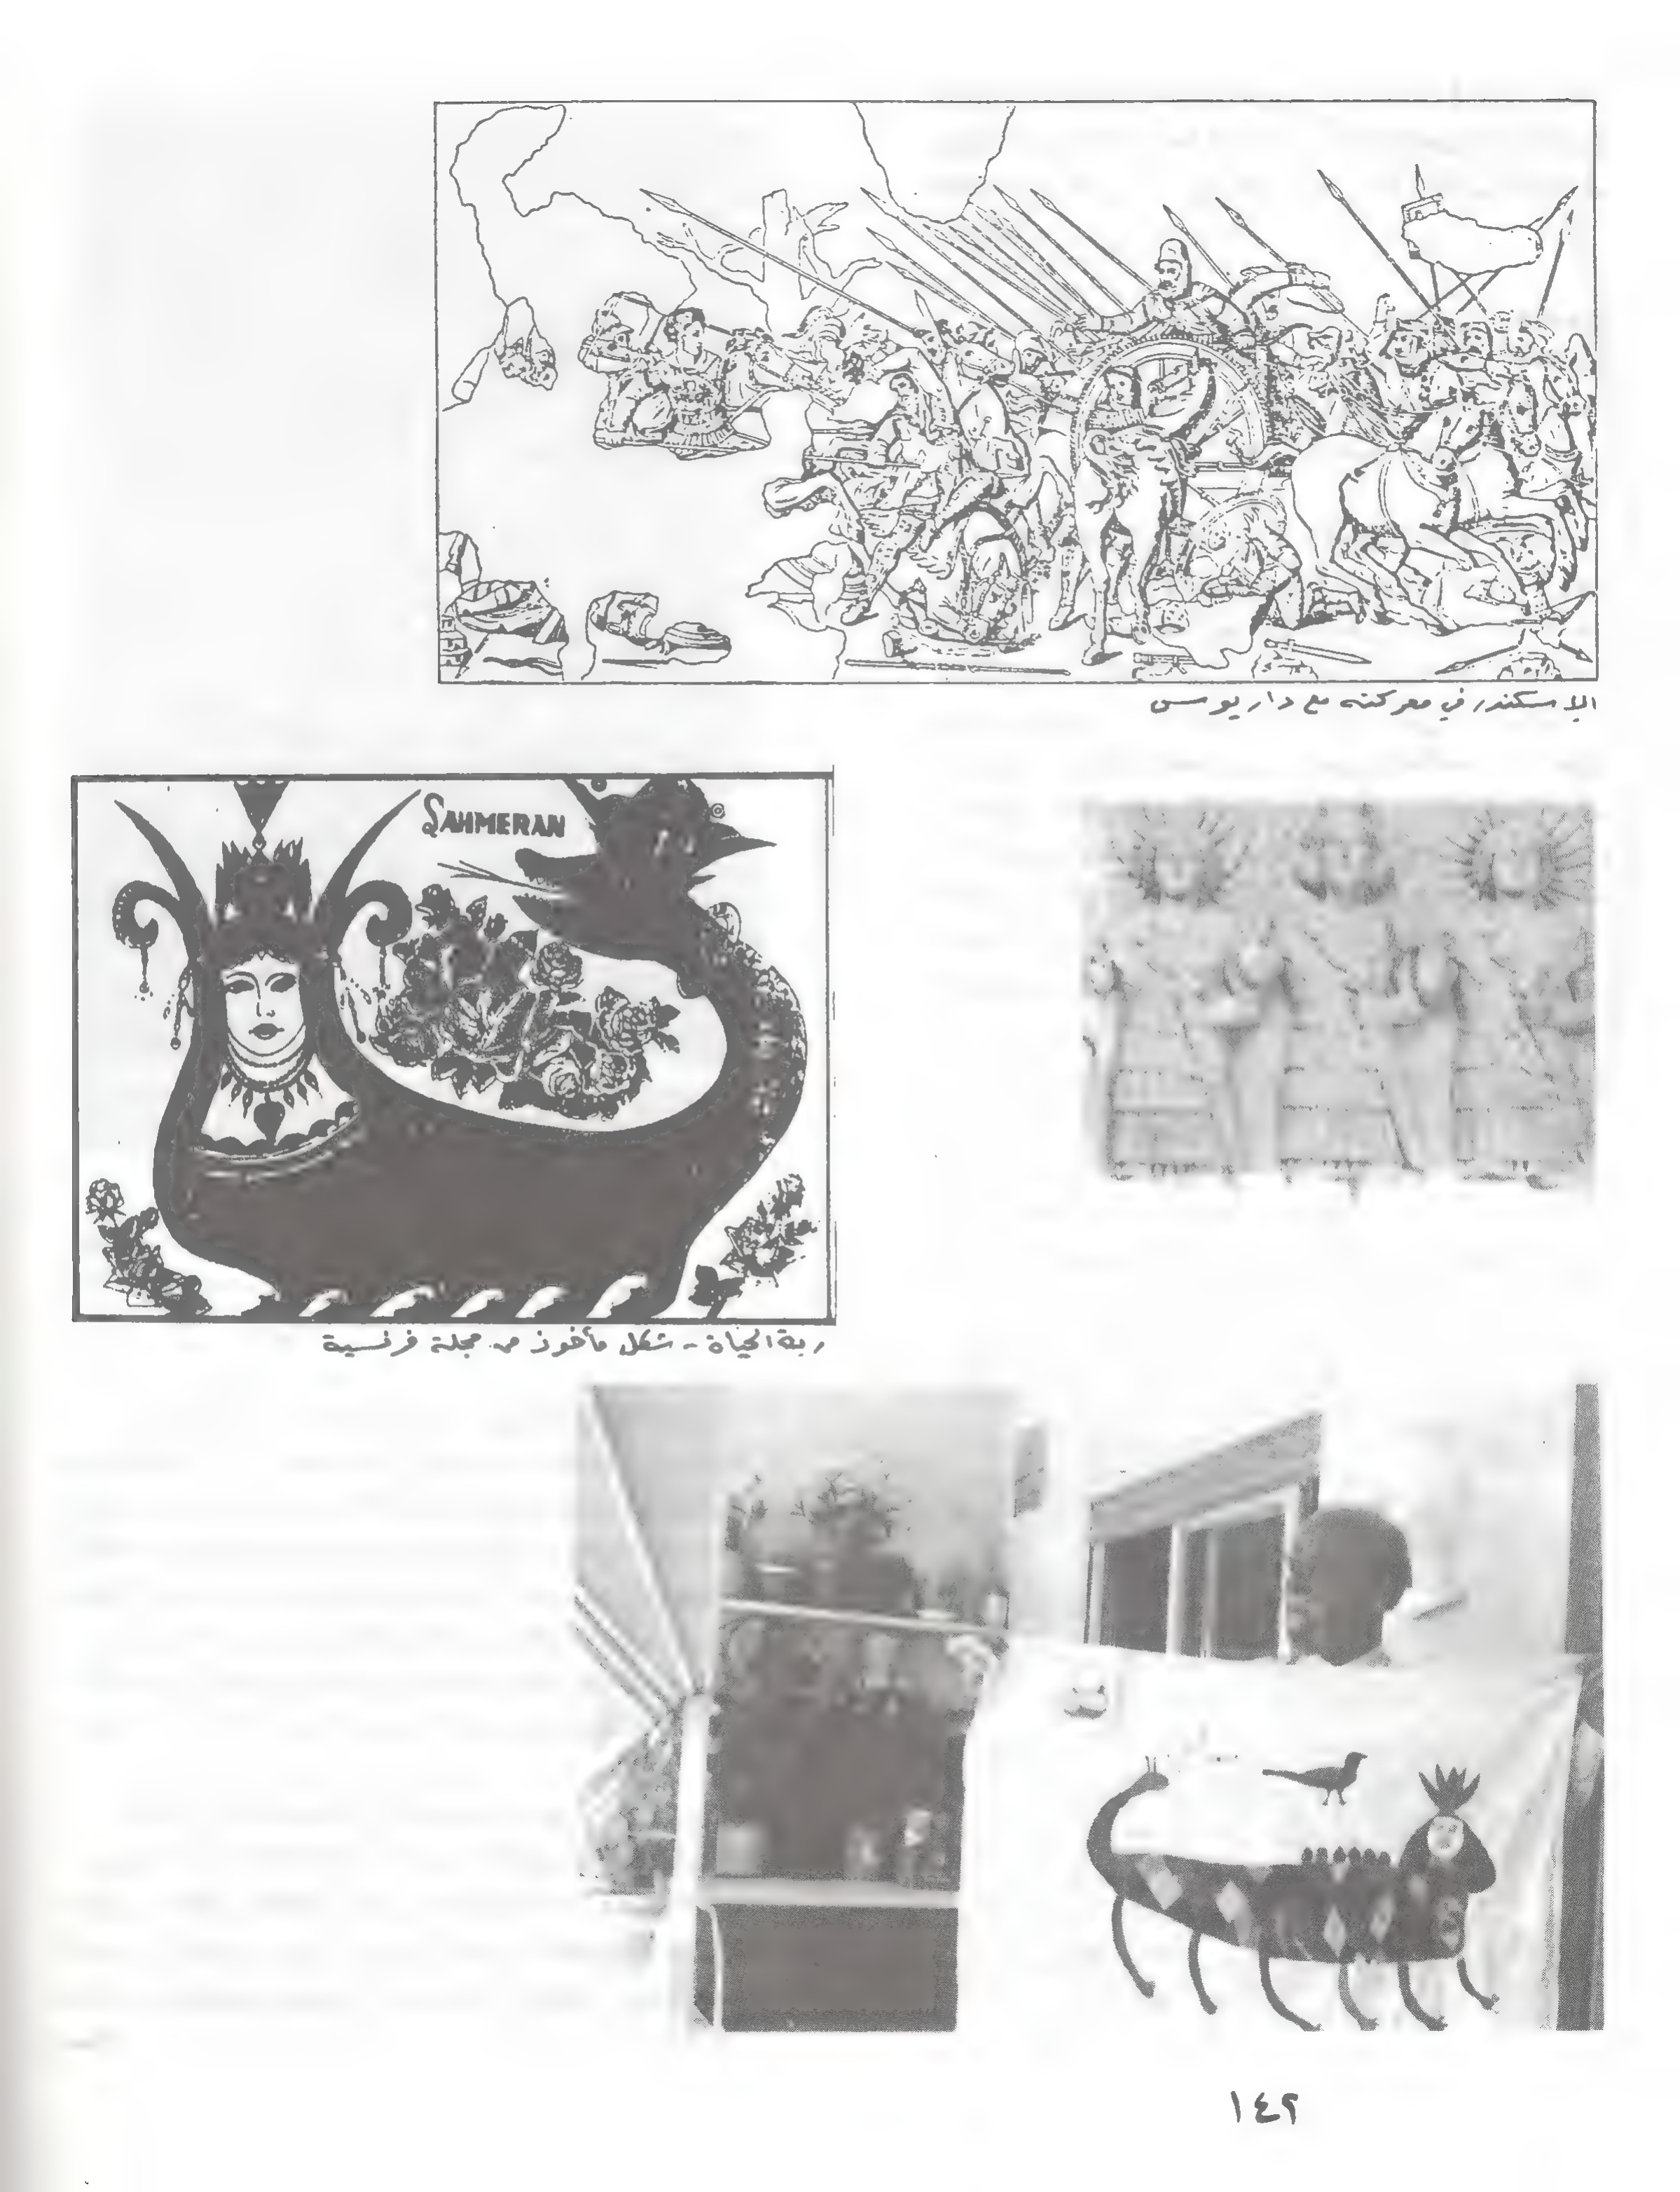 الاسكندر في معركته مع داريوس
ŞAHMERAN
ربة الحياة - شكل مأخوذ من مجلة فرنسية
١٤٢